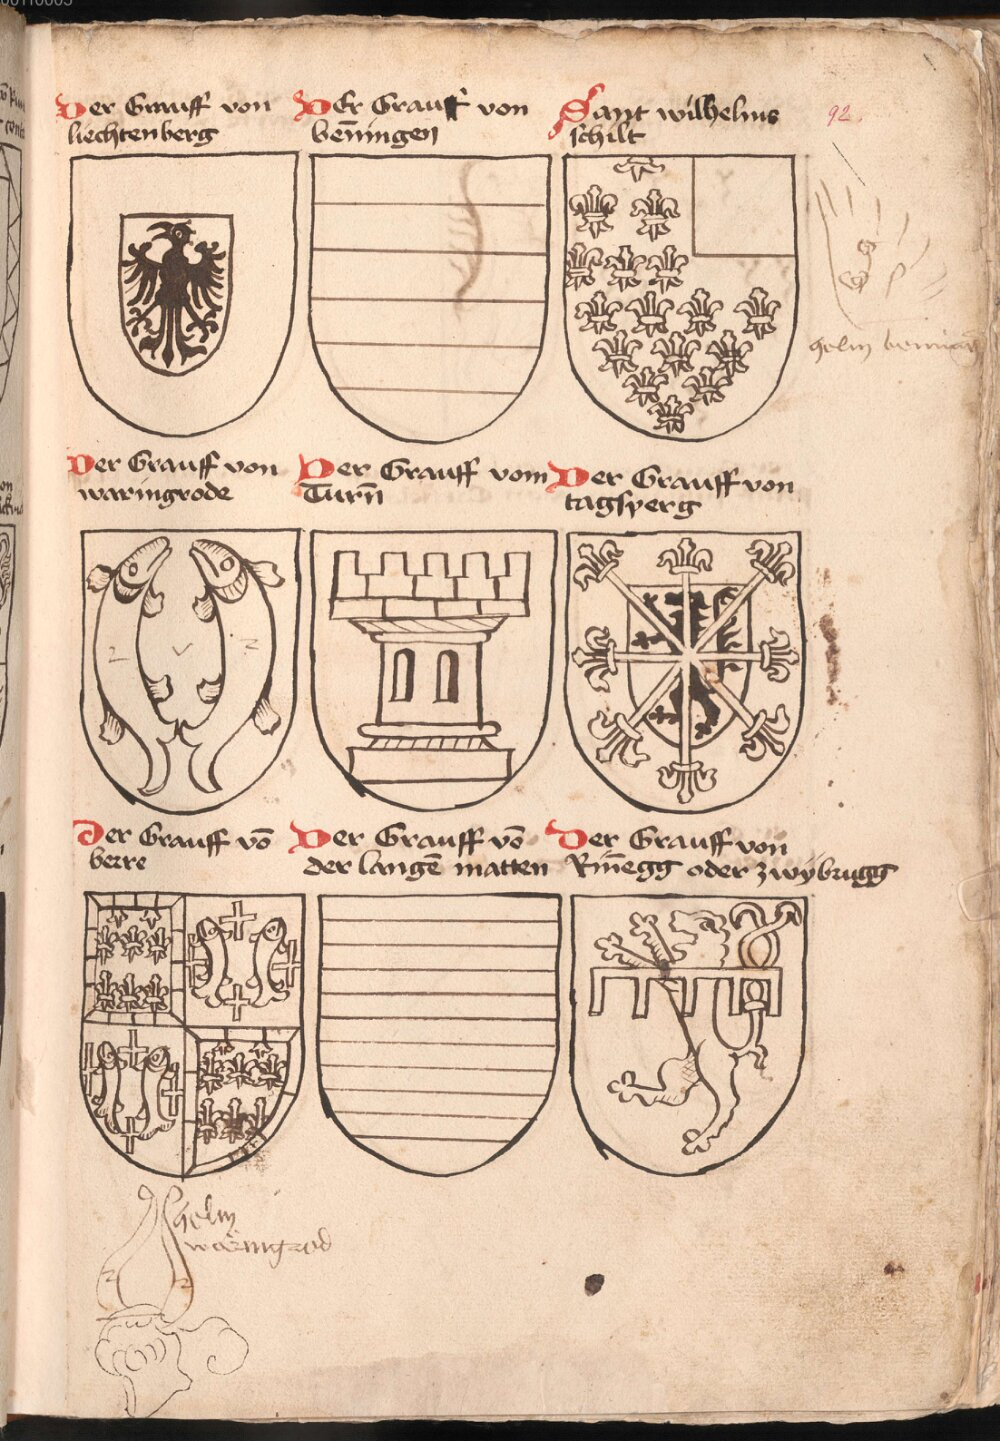 Der Grauff von
liechtenberg
DEr Grauff von
beñingen
Sant wilhelms
schilt
92
helm
Der Grauff von
waringrode
Der Grauff vom
Turñ
Der Grauff von
tagsperg
Der Grauff võ
berre
Der Grauff võ
der langẽ matten
Der Grauff von
Rinegg oder zwÿbrugg
helm
waringrod